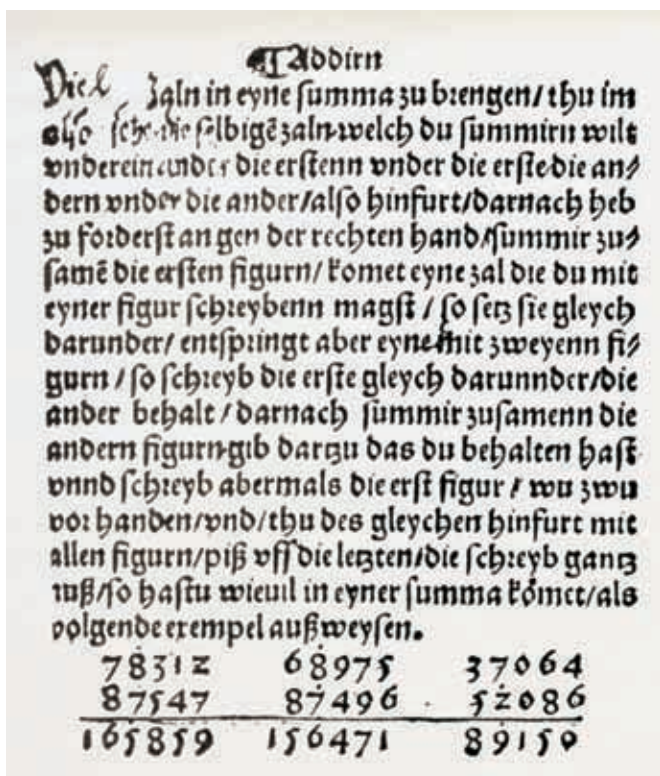 ¶ Addirn
Viel zaln in eyne summa zu brengen/ thu im
also sehe die selbigē zaln welch du summirn wilt
vnderein ander die erstenn vnder die erste die an⸗
dern vnder die ander/also hinfurt/darnach heb
zu forderst an gen der rechten hand/summir zu⸗
samē die ersten figurn/ komet eyne zal die du mit
eyner figur schreybenn magst / so setz sie gleych
darunder/ entspringt aber eyne mit zweyenn fi⸗
gurn / so schreyb die erste gleych darunnder/die
ander behalt / darnach summir zusamenn die
andern figurn gib dartzu das du behalten hast
vnnd schreyb abermals die erst figur / wu zwu
vor handen/vnd/thu des gleychen hinfurt mit
allen figurn/piß vff die letzten/die schreyb gantz
auß/so hastu wieuil in eyner summa kōmet/als
volgende exempel außweysen.
78312 68975 37064
87547 87496 52086
165859 156471 89150